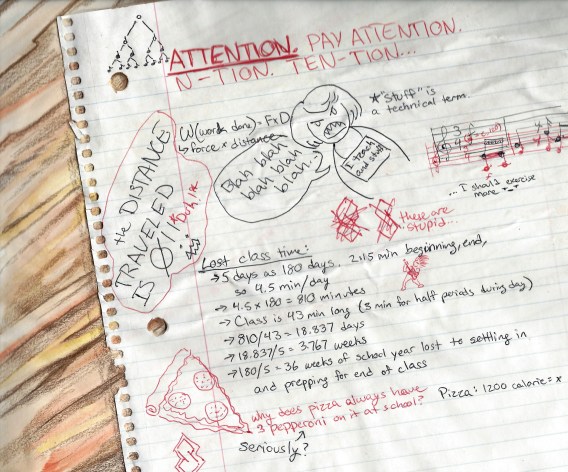 ATTENTION. PAY ATTENTION.
N-TION. TEN-TION...
*"Stuff" is
a technical term.
W(work done) = F×D
↳force × distance
Blah blah
blah blah
blah...
I teach
and stuff
the DISTANCE
TRAVELED
IS Ø!!
...I should exercise
more
these are
stupid...
Lost class time:
→5 days as 180 days. 2
beginning, end,
so 4.5 min/day
→4.5 × 180 = 810 minutes
→Class is 43 min long (3 min for half periods during day)
→810/43 = 18.837 days
→18.837/5 = 3.767 weeks
→180/5 = 36 weeks of school year lost to settling in
and prepping for end of class
why does pizza always have
3 pepperoni on it at school?
Pizza: 1200 calories x
Seriously?